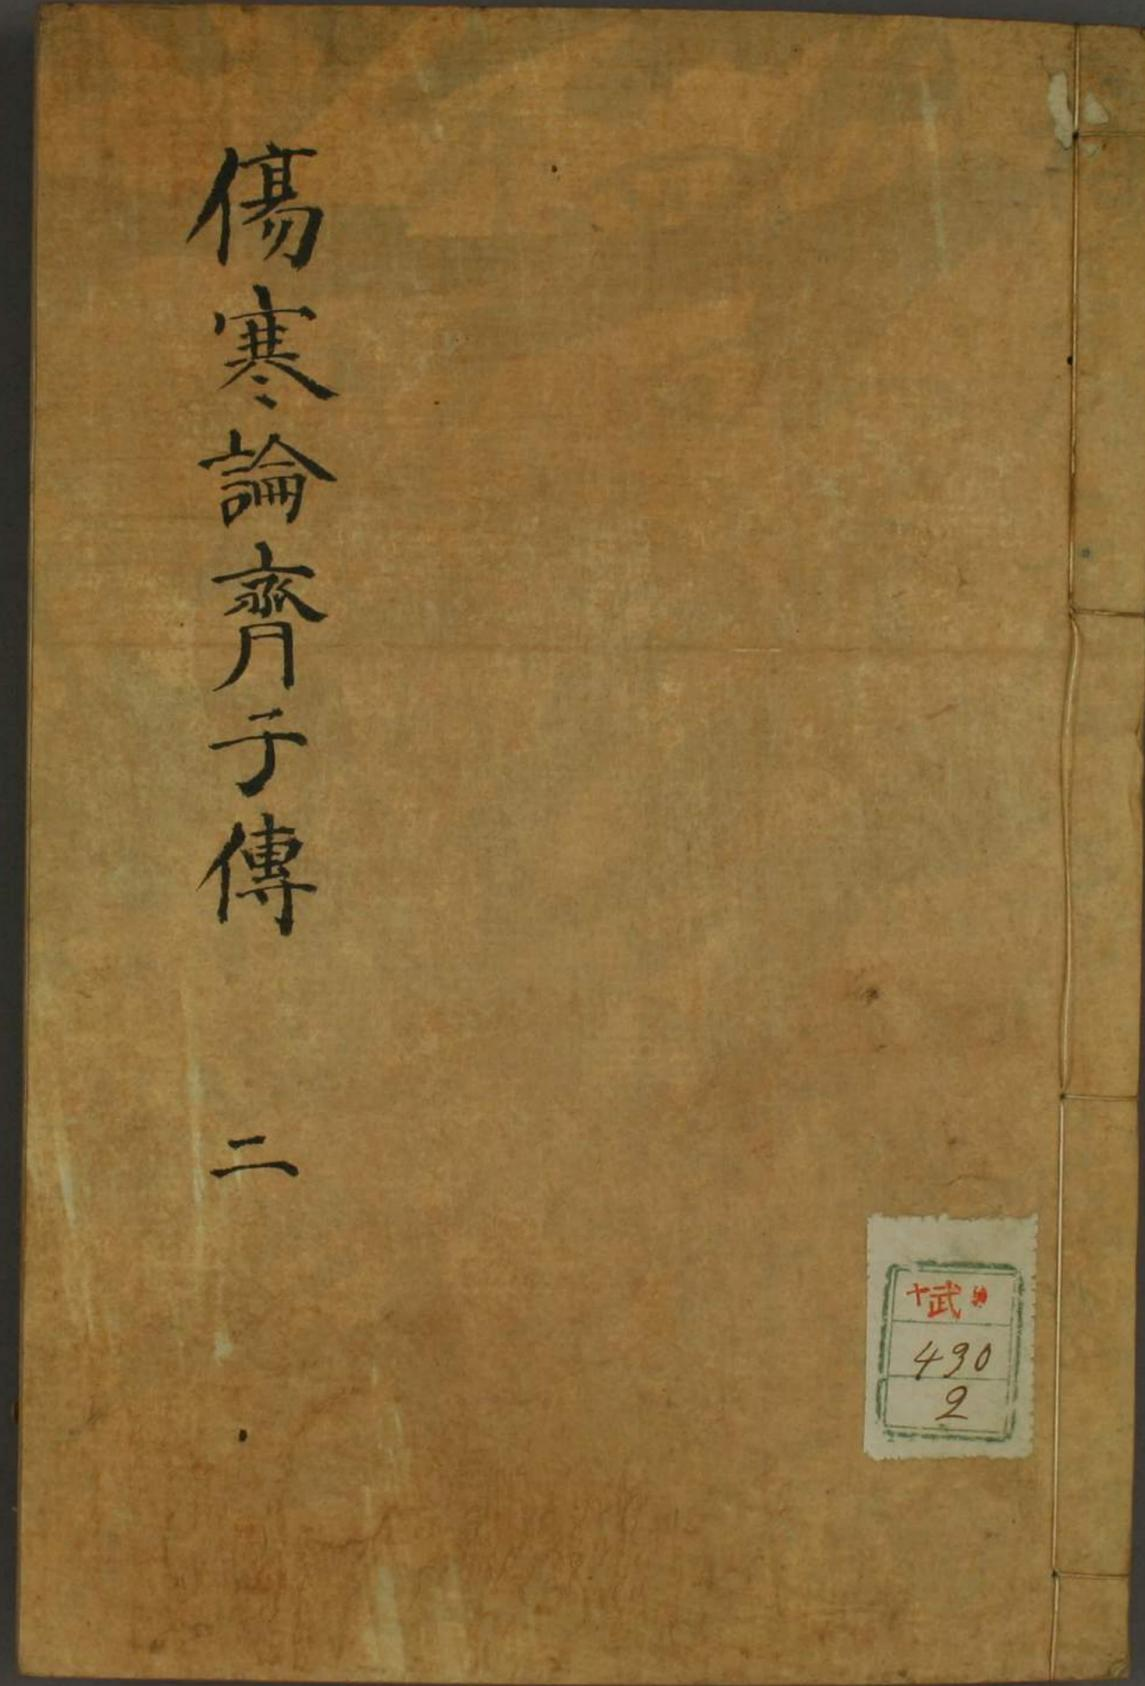 傷寒論齊子傳 二
武
490
2